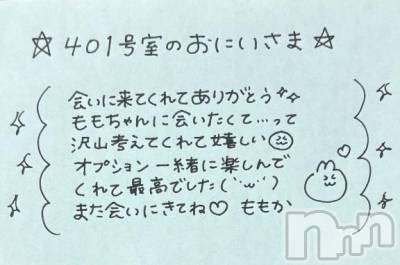 ☆401号室のおにいさま☆
会いに来てくれてありがとう✧✧
ももちゃんに会いたくて…って
沢山考えてくれて嬉しい
オプション一緒に楽しんで
くれて最高でした(´˙ω˙`)
また会いにきてね♡ ももか
nnn